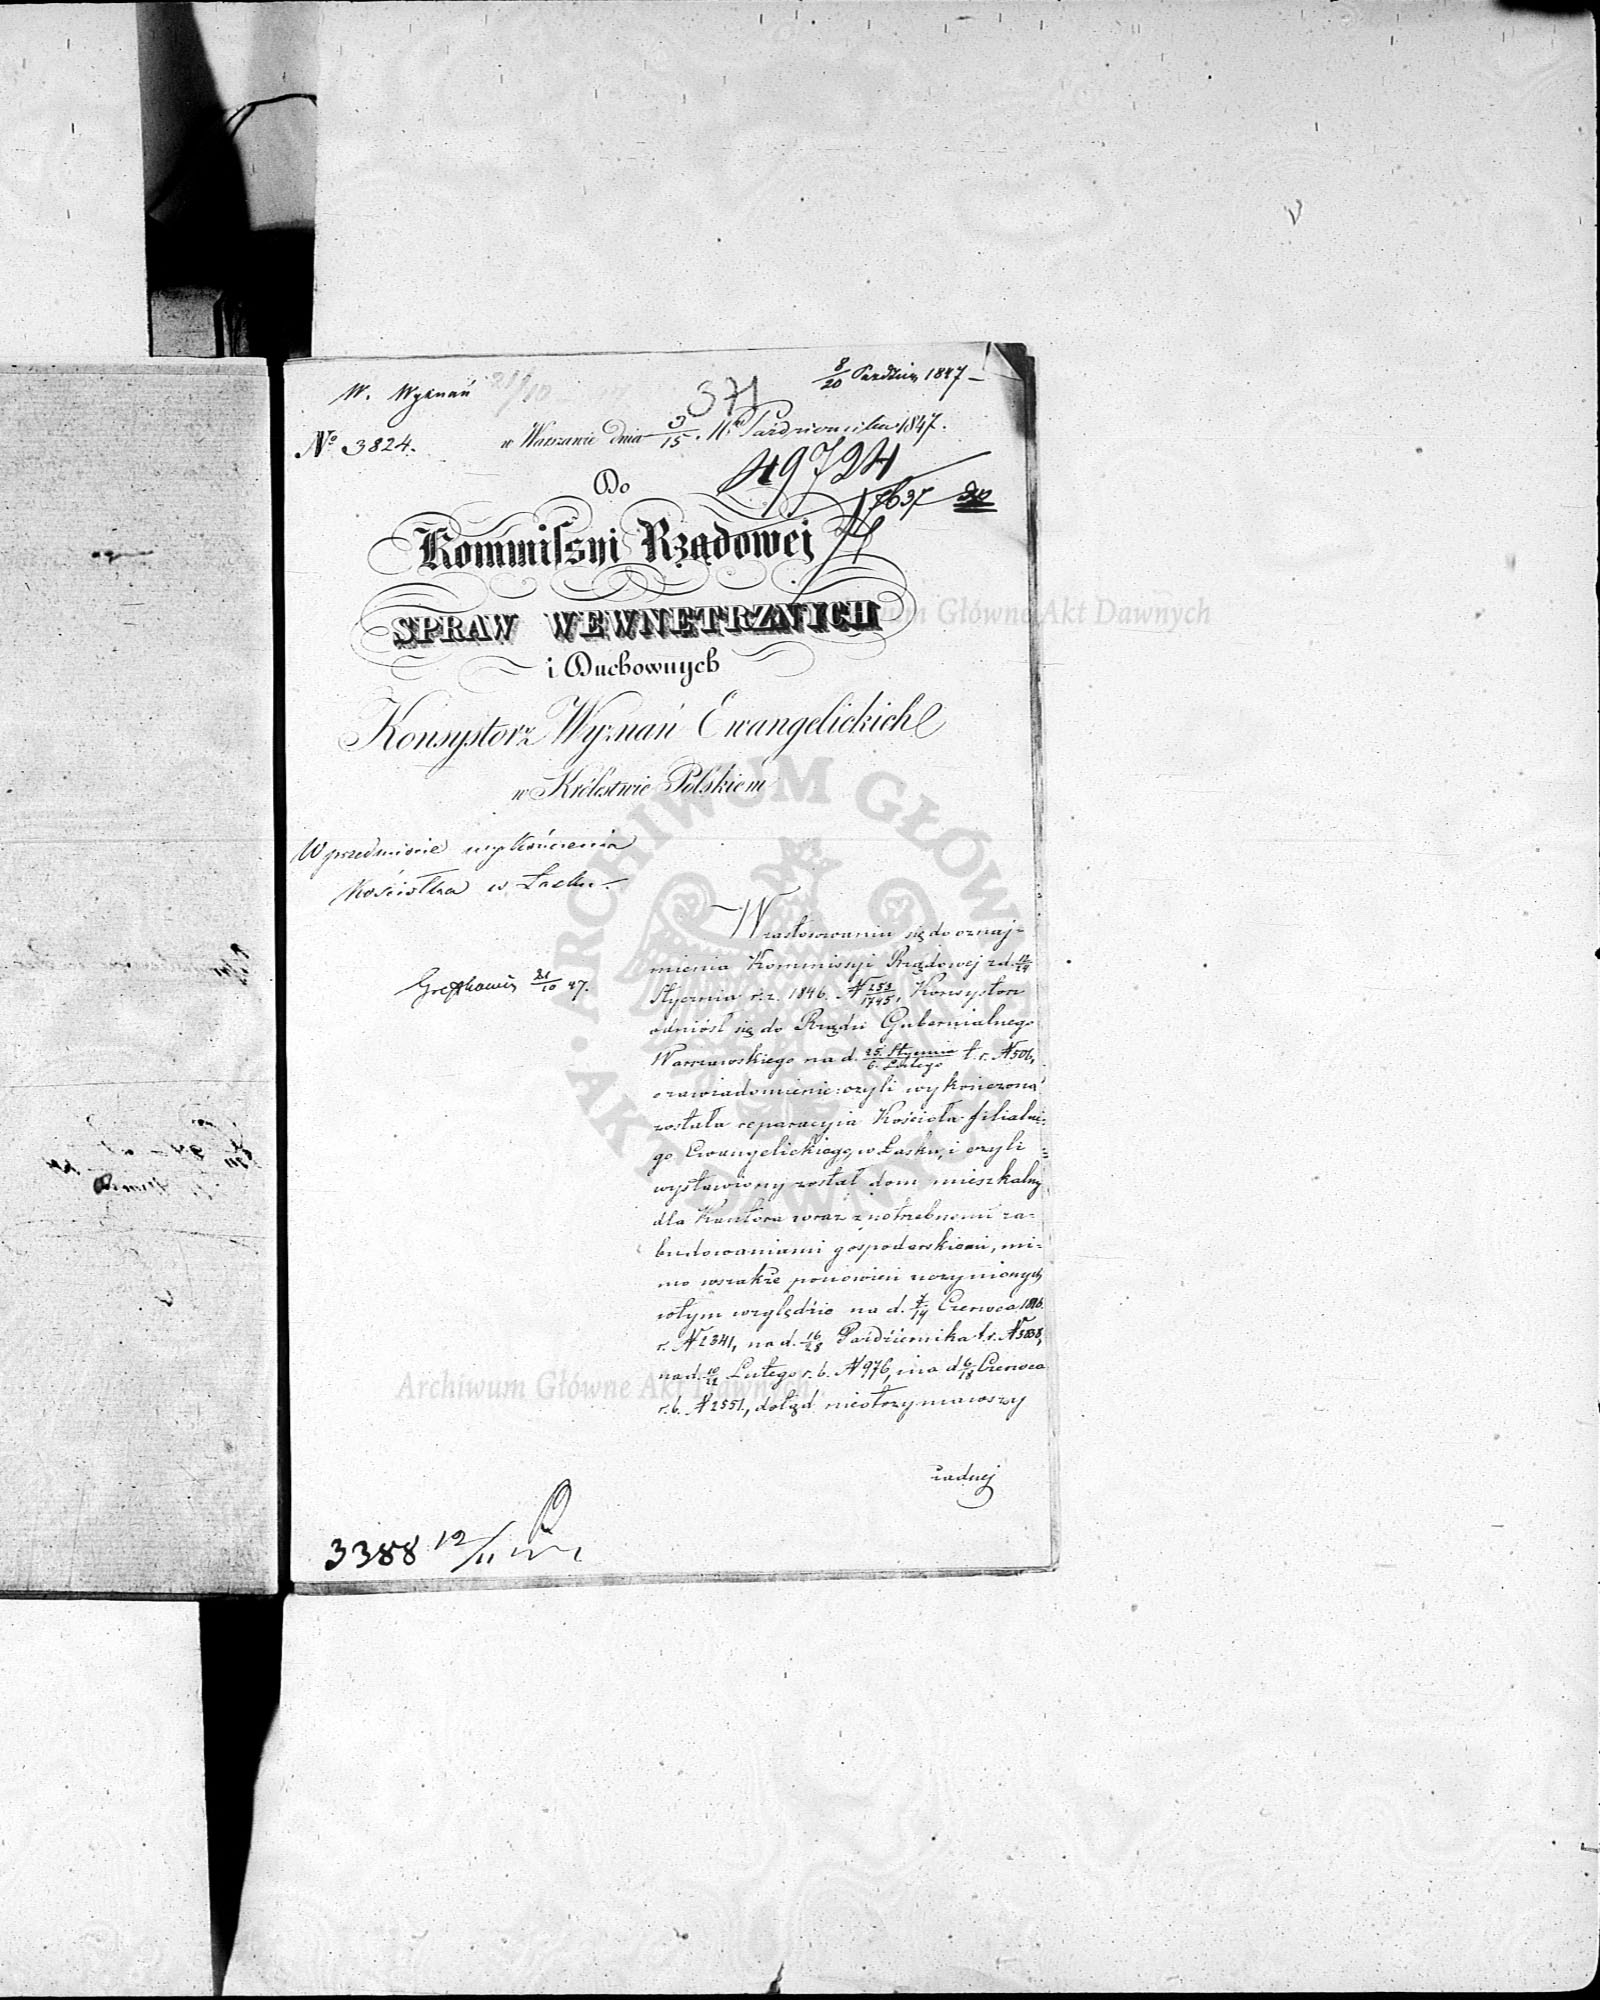 W. Wyznań
8/20 Paźdźier 1847 –
371
No 3824.
w Warszawie dnia 3/15. Mca Października 1847.
49724
17637
Do
Kommissyi Rządowej
SPRAW WEWNĘTRZNYCH
i Duchownych
Konsystorz Wyznań Ewangelickich
w Królestwie Polskiem
W przedmiocie wykończenia
Kościołka w Łasku. –
W zastosowaniu się do oznaj-
mienia Kommissyi Rządowej z d. 12/24
Stycznia r. z. 1846. N 253/1745, Konsystorz
odniósł się do Rządu Gubernialnego
Warszawskiego na d. 25. Stycznia/6. Lutego t. r. N 506,
o zawiadomienie: czyli wykończoną
została reparacyia Kościoła filialne-
go Ewangelickiego, w Łasku, i czyli
wystawiony został dom mieszkalny
dla Kantora wraz z potrzebnemi za-
budowaniami gospodarskiemi, mi-
mo wszakże ponowień uczynionych
w tym względzie na d. 7/19 Czerwca 1846.
r. N 2341, na d. 16/28 Października t. r. N 5838,
na d. 10/22 Lutego r. b. N 976, i na d 6/18 Czerwca
r. b. N 2551, dotąd nieotrzymawszy
żadnej
21/10 47.
3388 12/11
Archiwum Główne Akt Dawnych
ARCHIWUM GŁÓWNE AKT DAWNYCH
Archiwum Główne Akt Dawnych